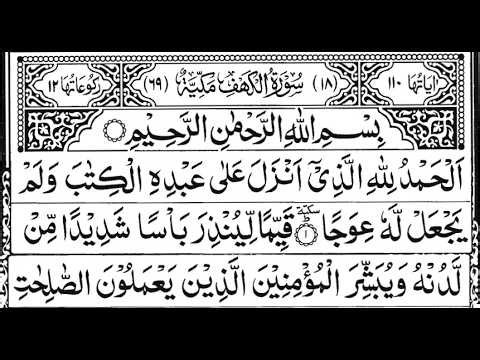 اٰيَاتُهَا ١١٠ (١٨) سُوۡرَةُ الۡكَهۡفِ مَكِّيَّةٌ (٦٩) رُكُوۡعَاتُهَا ١٢
بِسۡمِ اللهِ الرَّحۡمٰنِ الرَّحِيۡمِ
اَلۡحَمۡدُ لِلّٰهِ الَّذِىۡۤ اَنۡزَلَ عَلٰى عَبۡدِهِ الۡكِتٰبَ وَلَمۡ
يَجۡعَلۡ لَّهٗ عِوَجًا ؕ سكتة ۝١ قَيِّمًا لِّيُنۡذِرَ بَاۡسًا شَدِيۡدًا مِّنۡ
لَّدُنۡهُ وَيُبَشِّرَ الۡمُؤۡمِنِيۡنَ الَّذِيۡنَ يَعۡمَلُوۡنَ الصّٰلِحٰتِ